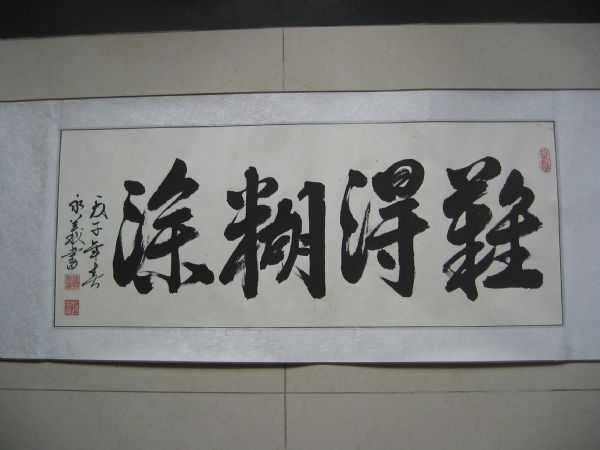 難得糊涂
戊子年春
永義書